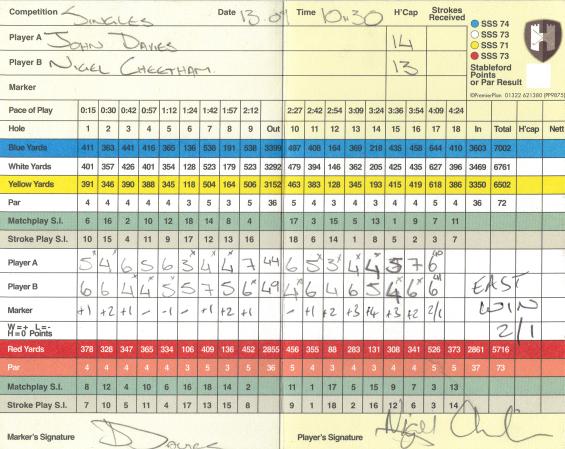 Competition SINGLES Date 13.09 Time 10:30 H'Cap Strokes Received
Player A JOHN DAVIES 14
Player B NIGEL CHEETHAM 13
Marker
SSS 74
SSS 73
SSS 71
SSS 73
Stableford Points or Par Result
©PremierPlan 01322 621380 (PP9875)
Pace of Play 0:15 0:30 0:42 0:57 1:12 1:24 1:42 1:57 2:12 2:27 2:42 2:54 3:09 3:24 3:36 3:54 4:09 4:24
Hole 1 2 3 4 5 6 7 8 9 Out 10 11 12 13 14 15 16 17 18 In Total H'cap Nett
Blue Yards 411 363 441 416 365 136 538 191 538 3399 497 408 164 369 218 435 458 644 410 3603 7002
White Yards 401 357 426 401 354 128 523 179 523 3292 479 394 146 362 205 425 435 627 396 3469 6761
Yellow Yards 391 346 390 388 345 118 504 164 506 3152 463 383 128 345 193 415 419 618 386 3350 6502
Par 4 4 4 4 4 3 5 3 5 36 5 4 3 4 3 4 4 5 4 36 72
Matchplay S.I. 6 16 2 10 12 18 14 8 4 17 3 15 5 13 1 9 7 11
Stroke Play S.I. 10 15 4 11 9 17 12 13 16 18 6 14 1 8 5 2 3 7
Player A 5 4 6 5 6 3 4 4 7 44 6 5 3 4 4 5 7 6
Player B 6 6 4 4 5 5 7 5 6 49 4 6 4 6 5 4 6 6 EAST
Marker +1 +2 +1 - -1 - +1 +2 +1 - +1 +2 +3 +4 +3 +2 2/1 WIN
W=+ L=- H=0 Points 2/1
Red Yards 378 328 347 365 334 106 409 136 452 2855 456 355 88 283 131 308 341 526 373 2861 5716
Par 4 4 4 4 4 3 5 3 5 36 5 4 3 4 3 4 4 5 5 37 73
Matchplay S.I. 8 12 4 10 6 16 18 14 2 11 1 17 5 15 9 7 3 13
Stroke Play S.I. 7 10 5 11 4 17 13 15 8 9 1 18 2 16 12 6 3 14
Marker's Signature D Davies Player's Signature Nigel